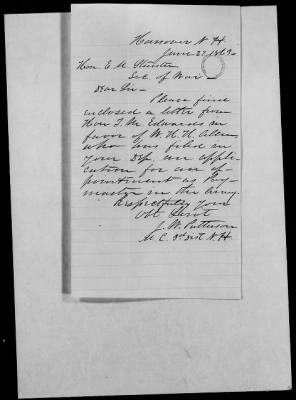 Hanover N H
June 23 186
Hon E M Stanton
Sec. of War
Dear Sir-
Please find
enclosed a letter from
Hon T. M. Edwards in
favor of W. H. H. Allen
who has filed in
your Dep. an appli-
cation for an ap-
pointment as Pay
master in the Army.
Respectfully Your
Obt Servt
J. W. Patterson
M. C. 3d Dist N. H.